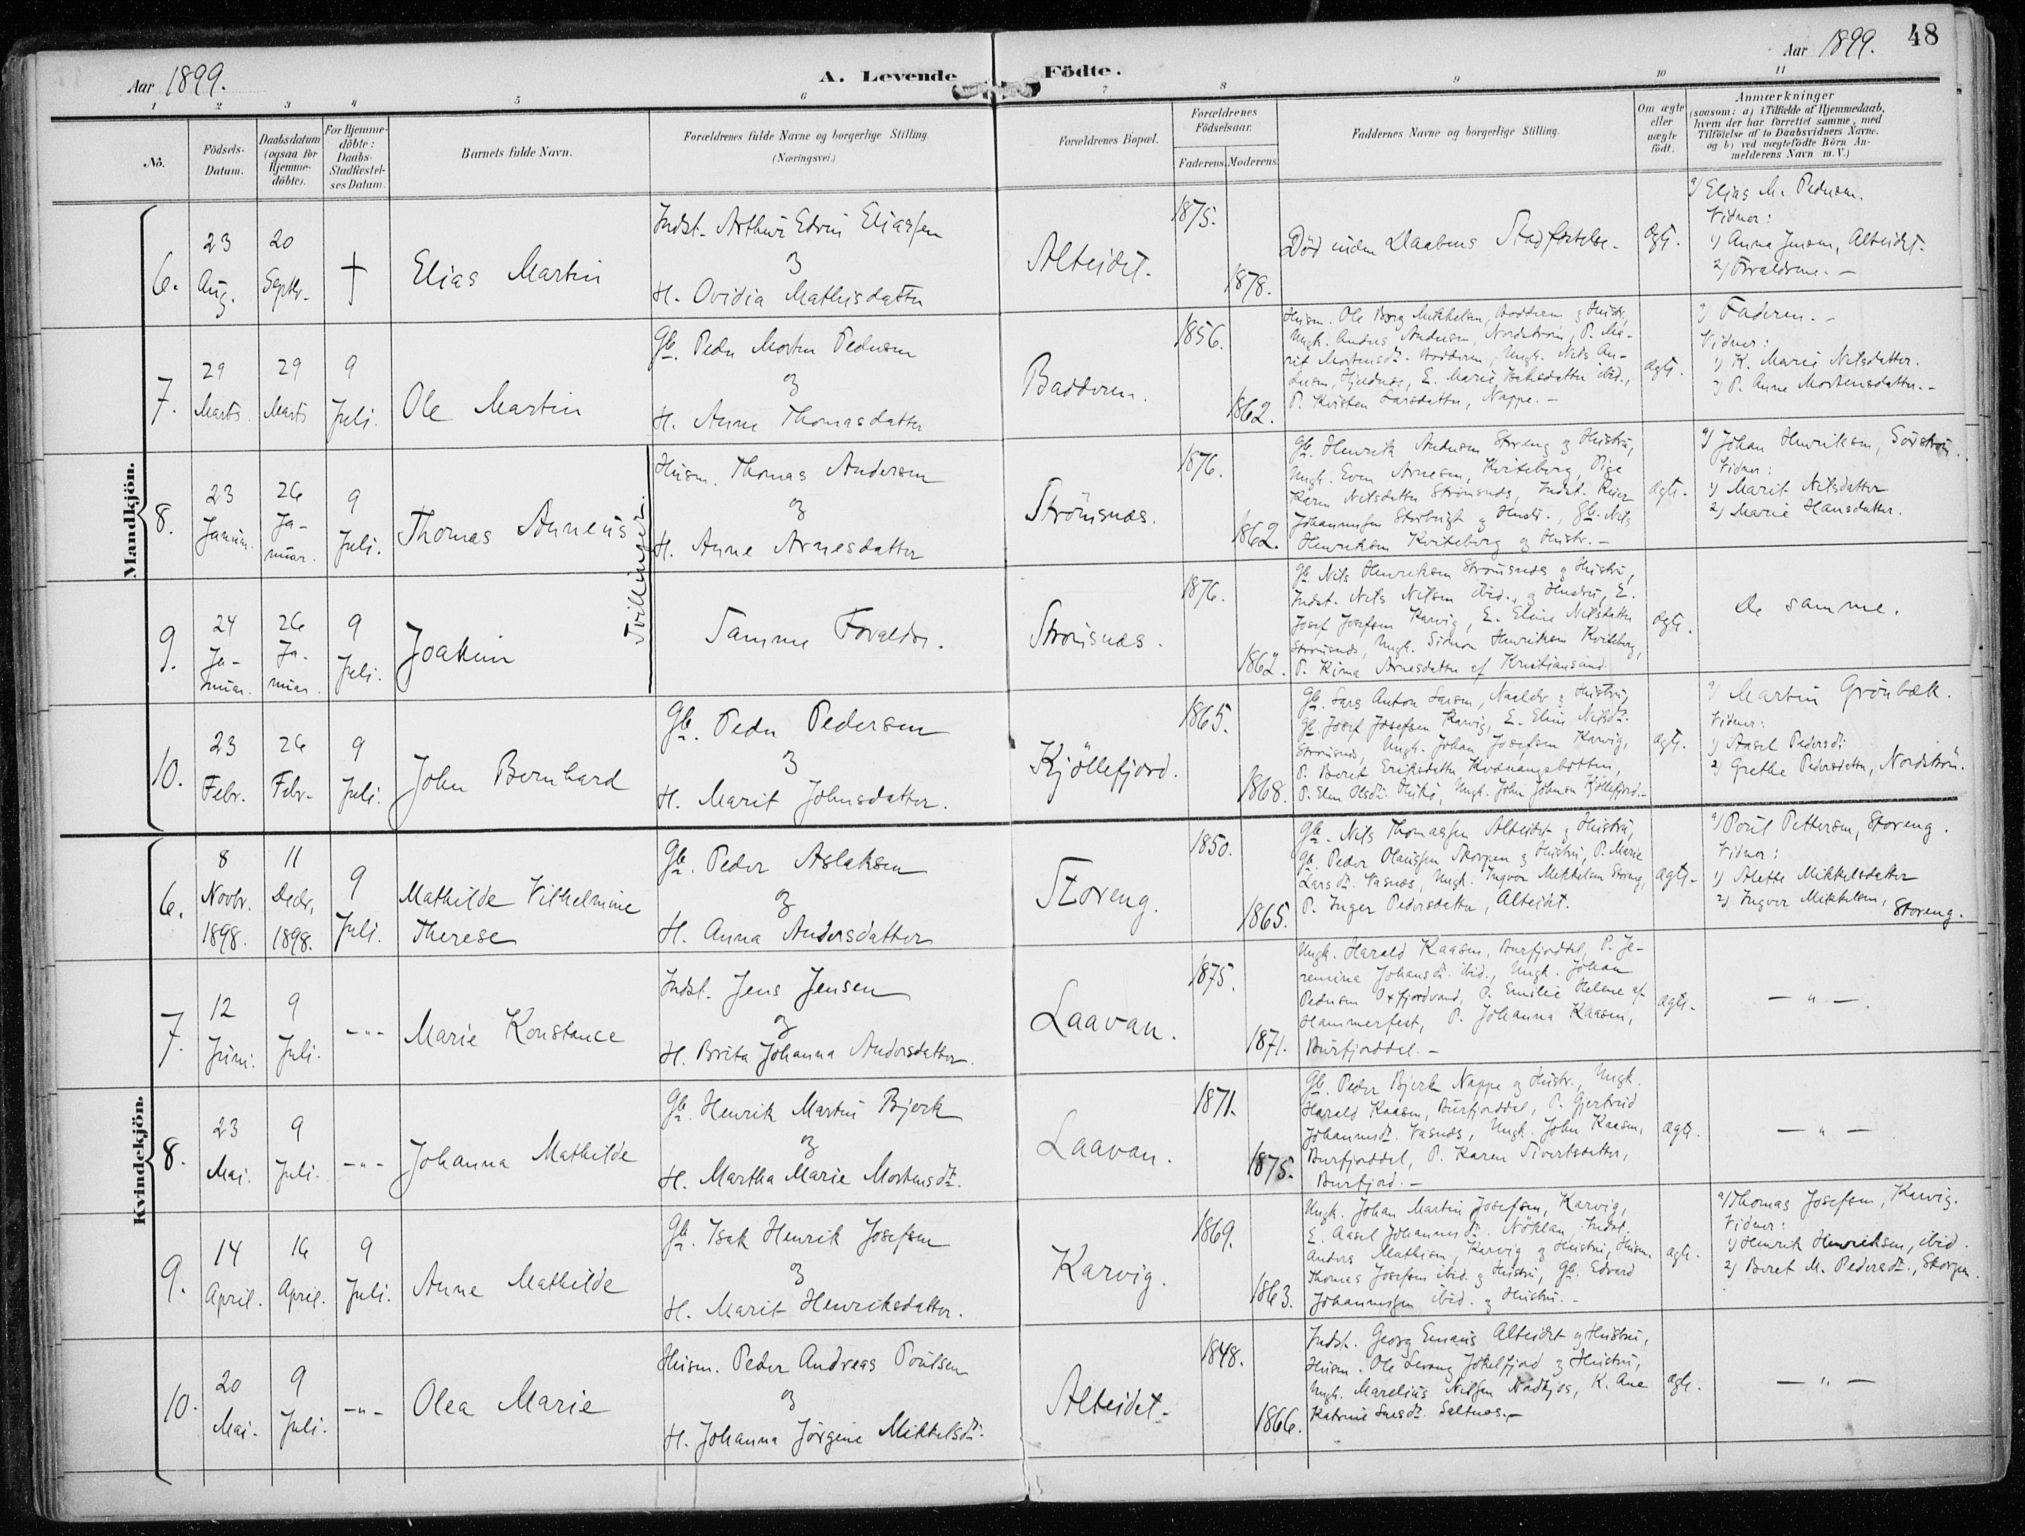 Aar 1899.
A. Levende Födte.
Aar 1899. 48
1 2 3 4 5 6 7 8 9 10 11
No.
Födsels-Datum.
Daabsdatum (ogsaa for Hjemme-döbte).
For Hjemme-döbte: Daabs-Stadfæstel-ses Datum.
Barnets fulde Navn.
Forældrenes fulde Navne og borgerlige Stilling. (Næringsvei.)
Forældrenes Bopæl.
Forældrenes Födselsaar.
Faderens. Moderens.
Faddernes Navne og borgerlige Stilling.
Om ægte eller uægte födt.
Anmærkninger
(saasom: a) i Tilfælde af Hjemmedaab,
hvem der har forrettet samme, med
Tilföielse af to Daabsvidners Navne.
og b) ved uægtefödte Börn An-
melderens Navn m. V.)
Mandkjön.
6.
23 Aug.
20 Septbr.
†
Elias Martin
Indst. Arthur Edvin Eliassen
&
H. Ovidia Mathisdatter
Alteidet.
1875.
1878.
Död inden Daabens Stadfæstelse.
ægte.
a) Elias M. Pedersen.
Vidner:
1) Anna Jensen, Alteidet.
2) Forældrene. -
7.
29 Marts.
29 Marts
9 Juli.
Ole Martin
Gb. Peder Morten Pedersen
&
H. Anne Thomasdatter
Badderen.
1856.
1862.
Husm. Ole Borg Mikkelsen, Badderen & Hustr.,
Ungk. Anders Andersen, Nordström, P. Ma-
rit Mortensdt. Badderen, Ungk. Nils An-
dersen, Hjeldnes, E. Marie Isaksdatter ibid.,
P. Kristen Larsdatter, Nappe. -
ægte.
a) Faderen. -
Vidner:
1) K. Marie Nilsdatter.
2) P. Anne Mortensdatter. -
8.
23 Januar.
26 Ja-nuar.
9 Juli.
Thomas Anneus
Tvillinger.
Husm. Thomas Andersen
&
H. Anne Arnesdatter
Strömsnæs.
1876.
1862.
Gb. Henrik Andersen Storeng & Hustru,
Ungk. Even Arnesen, Kviteberg, Pige
Karen Nilsdatter Strömsnæs, Indst. Peier
Johannessen Storbugt & Hustr., Gb. Nils
Henriksen Kviteberg & Hustr. -
ægte.
a) Johan Henriksen, Sörström.
Vidner:
1) Marit Nilsdatter
2) Marie Hansdatter.
9.
24 Ja-nuar.
26 Ja-nuar.
9 Juli.
Joakim
Samme Forældre.
Strömsnæs.
1876.
1862.
Gb. Nils Henriksen Strömsnæs & Hustru,
Indst. Nils Nilsen ibid., & Hustru, E.
Josef Josefsen Karvig, E. Eline Nilsdatter
Strömsnæs, Ungk. Simon Henriksen Kviteberg,
P. Kirna Arnesdatter af Kristiansund.
ægte.
De samme.
10.
23 Febr.
26 Febr.
9 Juli.
John Bernhard
Gb. Peder Pedersen
&
H. Marit Johnsdatter.
Kjöllefjord.
1865.
1868.
Gb. Lars Anton Larsen, Naalde & Hustru,
Gb. Josef Josefsen Karvig, E. Eline Nilsdt.
Strömsnæs, Ungk. Johan Josefsen Karvig,
P. Berit Eriksdatter Kvænangsbotten,
P. Elen Olsdt. , Ungk. John Johnsen Kjöllefjord. -
ægte.
a) Martin Grönbæk.
Vidner:
1) Aasel Pedersdt.
2) Grethe Pedersdatter, Nordström.
Kvindekjön.
6.
8 Novbr. 1898.
11 Decbr. 1898.
9 Juli.
Mathilde Vilhelmine Therese
Gb. Peder Aslaksen
&
H. Anna Andersdatter
Storeng.
1850.
1865.
Gb. Nils Thomassen Alteidet & Hustru,
Gb. Peder Olaussen Skorpen & Hustru, P. Marie
Larsdt. Vasnæs, Ungk. Ingvor Mikkelsen Storeng,
P. Inger Pedersdatter, Alteidet.
ægte.
a) Poul Pettersen, Storeng.
Vidner:
1) Alette Mikkelsdatter
2) Ingvor Mikkelsen, Storeng.
7.
12 Juni.
9 Juli.
-"-
Marie Konstance
Indst. Jens Jensen
&
H. Brita Johanna Andersdatter.
Laavan.
1875.
1871.
Ungk. Harald Kaasen, Burfjorddel, P. Je-
remina Johansdt. ibid., Ungk. Johan
Pedersen Oxfjordvand, P. Emilie Helene af
Hammerfest, P. Johanna Kaasen,
Burfjorddel. -
ægte.
- " -.
8.
23 Mai.
9 Juli.
-"-
Johanna Mathilde
Gb. Henrik Martin Bjerk
&
H. Martha Marie Mortensdt.
Laavan.
1871.
1875.
Gb. Peder Bjerk Nappe & Hustr., Ungk.
Harald Kaasen, Burfjorddel, P. Gjertrud
Johannesdt. Vasnæs, Ungk. John Kaasen,
Burfjorddel, P. Karen Sivertsdatter,
Burfjord. -
ægte.
- " -
9.
14 April.
16 April.
9 Juli.
Anne Mathilde
Gb. Isak Henrik Josefsen
&
H. Marit Henriksdatter.
Karvig.
1869.
1863.
Ungk. Johan Martin Josefsen, Karvig,
E. Aasel Johannesdt. Nöklan, Indst.
Anders Mathisen, Karvig & Hustru, Husm.
Thomas Josefsen ibid. & Hustru, Gb. Edvard
Johannessen ibid. & Hustru. -
ægte.
a) Thomas Josefsen, Karvig.
Vidner:
1) Henrik Henriksen, ibid.
2) Beret M. Pedersdt., Skorpen.
10.
20 Mai.
9 Juli.
-"-
Olea Marie
Husm. Peder Andreas Poulsen
&
H. Johanna Jörgine Mikkelsdt.
Alteidet.
1848.
1866.
Indst. Georg Emaus Alteidet & Hustru,
Husm. Ole Levang Jökelfjord & Hustru,
Ungk. Marelius Nilsen , K. Ane
Katrine Larsdt. Saltnæs. -
ægte.
- " -